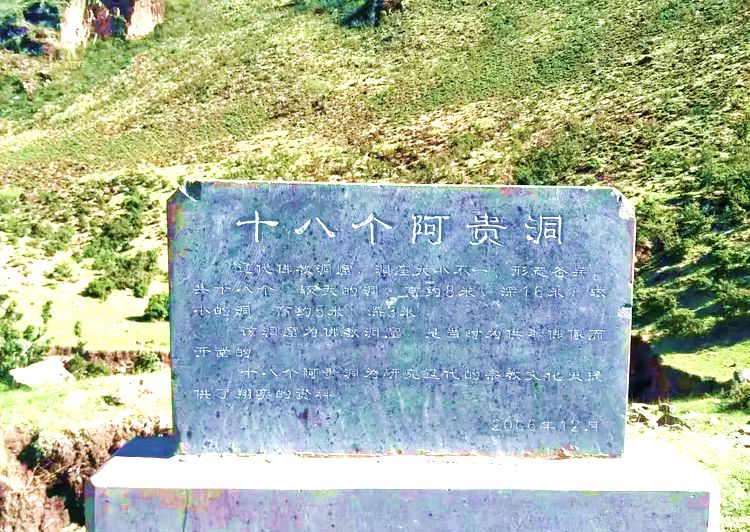 十八个阿贵洞
辽代佛教洞窟，洞窟大小不一，形态各异，
共十八个，较大的洞，高约8米，深16米，较
小的洞，高约5米，深3米。
该洞窟为佛教洞窟，是当时为供奉佛像而
开凿的。
十八个阿贵洞为研究辽代的宗教文化史提
供了翔实的资料。
2006年12月